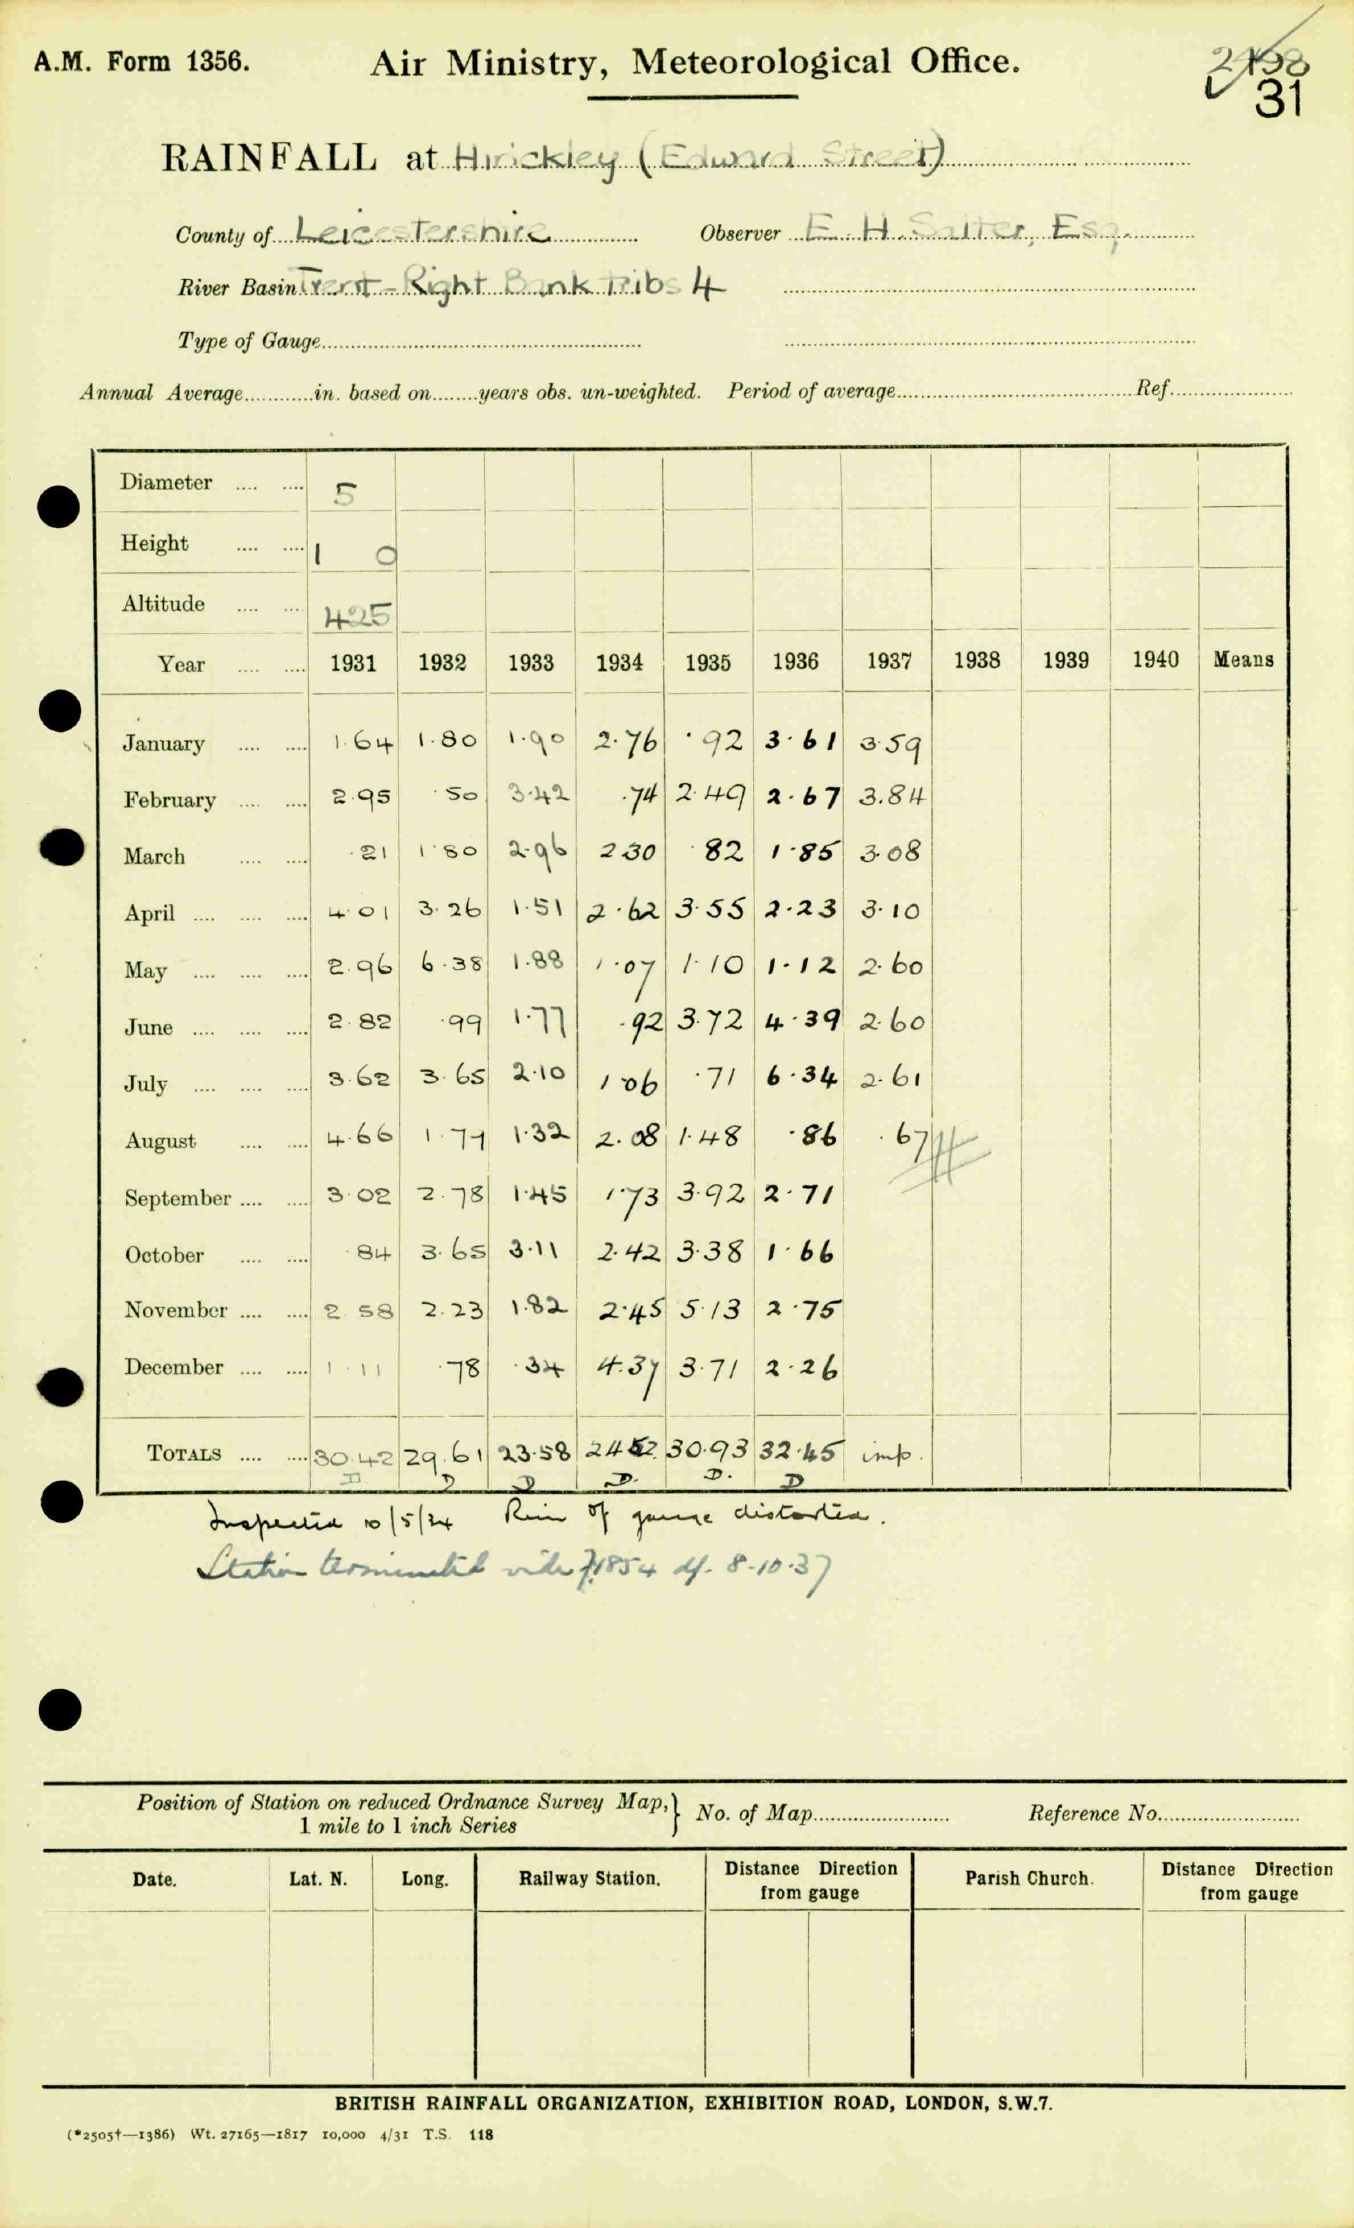 A.M. Form 1356.
Air Ministry, Meteorological Office.
31
RAINFALL at Hinckley (Edward Street)
County of Leicestershire Observer E. H. Salter, Esq.
River Basin Trent - Right Bank tribs 4
Type of Gauge
Annual Average in. based on years obs. un-weighted. Period of average Ref.
Diameter 5
Height 1 0
Altitude 425
Year 1931 1932 1933 1934 1935 1936 1937 1938 1939 1940 Means
January 1.64 1.80 1.90 2.76 .92 3.61 3.59
February 2.95 .50 3.42 .74 2.49 2.67 3.84
March .21 1.80 2.96 2.30 .82 1.85 3.08
April 4.01 3.26 1.51 2.62 3.55 2.23 3.10
May 2.96 6.38 1.88 1.07 1.10 1.12 2.60
June 2.82 .99 1.77 .92 3.72 4.39 2.60
July 3.62 3.65 2.10 1.06 .71 6.34 2.61
August 4.66 1.79 1.32 2.08 1.48 .86 .67
September 3.02 2.78 1.45 1.73 3.92 2.71
October .84 3.65 3.11 2.42 3.38 1.66
November 2.58 2.23 1.82 2.45 5.13 2.75
December 1.11 .78 .34 4.37 3.71 2.26
TOTALS 30.42 29.61 23.58 24.52 30.93 32.45 imp.
D D D D. D. D
Inspected 10/5/34 Rim of gauge distorted.
Station terminated vide 71854 df. 8-10-37
Position of Station on reduced Ordnance Survey Map, } No. of Map Reference No.
1 mile to 1 inch Series
Date. Lat. N. Long. Railway Station. Distance Direction from gauge Parish Church. Distance Direction from gauge
BRITISH RAINFALL ORGANIZATION, EXHIBITION ROAD, LONDON, S.W.7.
(*2505†—1386) Wt. 27165—1817 10,000 4/31 T.S. 118